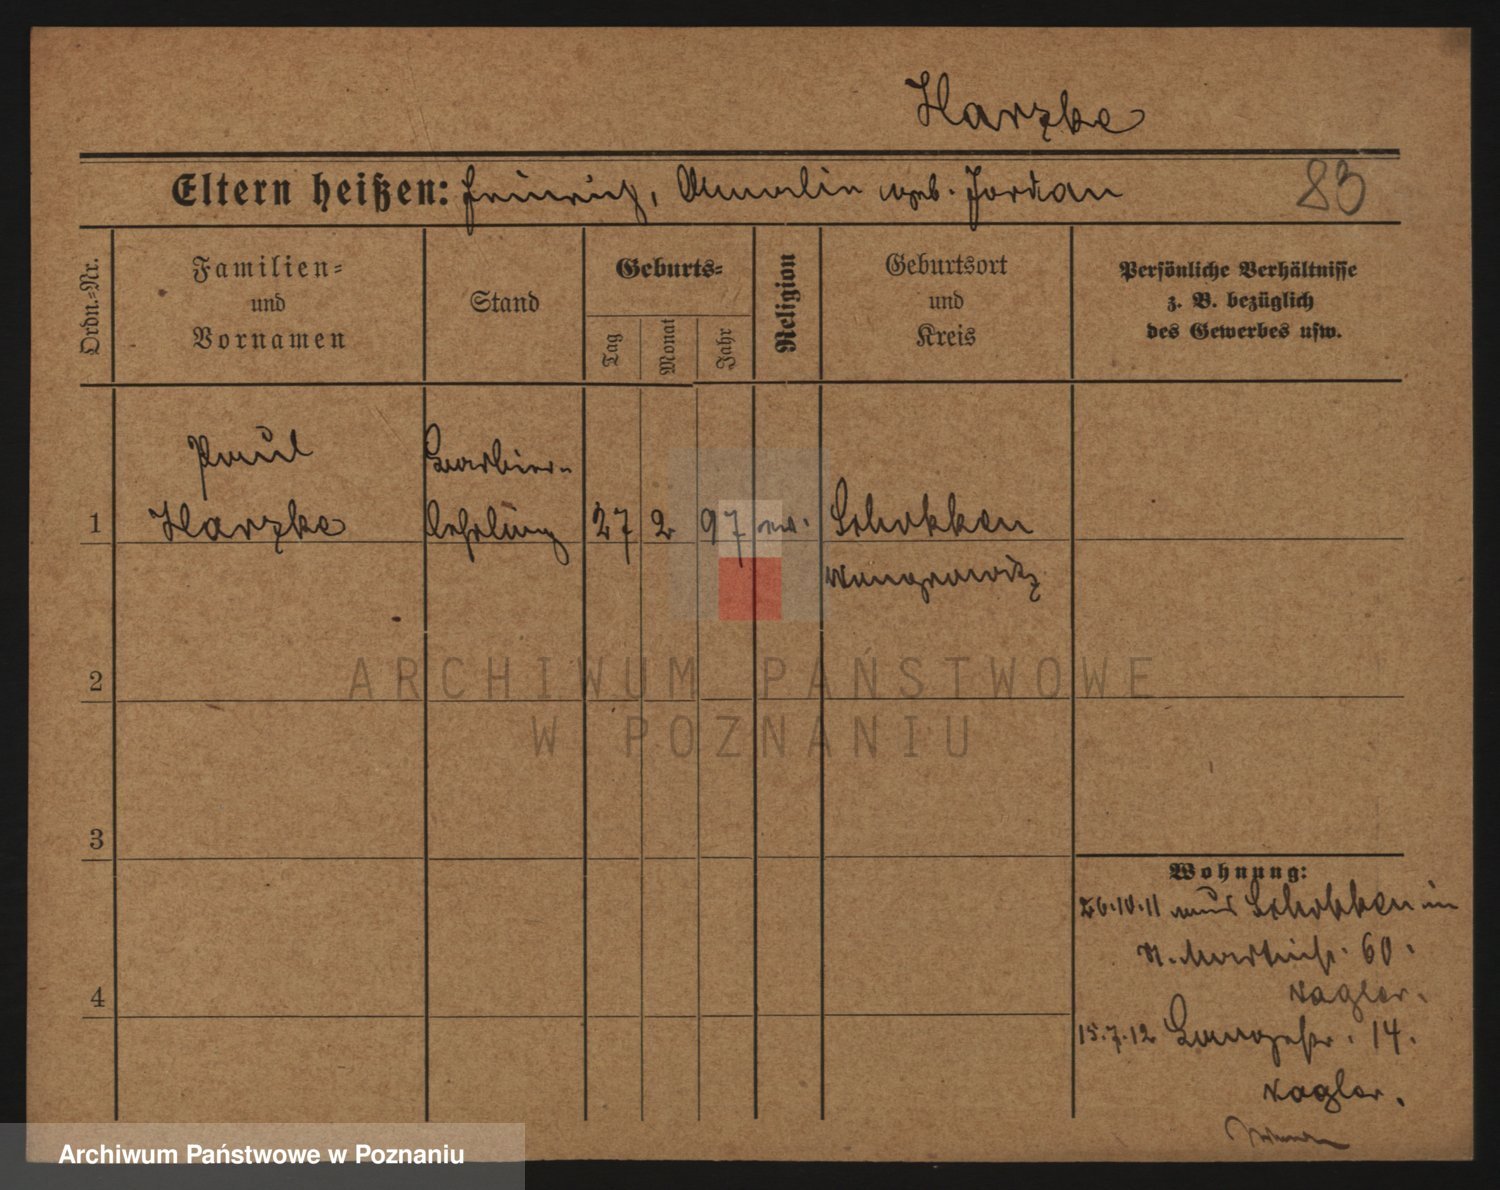 Harzke
Eltern heißen: Heinrich, Amalie geb. Jordan 83
Ordn.=Nr.
Familien=
und
Vornamen
Stand
Geburts=
Tag
Monat
Jahr
Religion
Geburtsort
und
Kreis
Persönliche Verhältnisse
z. B. bezüglich
des Gewerbes usw.
Paul Barbier-
1 Harzke lehrling 27 2 97 ev. Schokken
Wongrowitz
2
3
4
Wohnung:
26.10.11 aus Schokken in
St. Martinstr. 60.
15.7.12 Langestr. 14.
ARCHIWUM PAŃSTWOWE
W POZNANIU
Archiwum Państwowe w Poznaniu